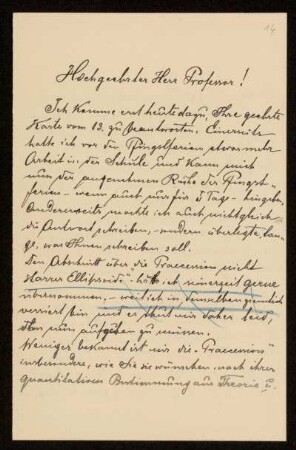 14
Hochgeehrter Herr Professor!
Ich komme erst heute dazu, Ihre geehrte
Karte vom 13. zu beantworten. Einerseits
hatte ich vor den Pfingstferien etwas mehr
Arbeit in der Schule und kann mich
nun der angenehmen Ruhe der Pfingst-
ferien – wenn auch nur für 3 Tage – hingeben,
andererseits mochte ich auch nicht gleich
die Antwort schreiben, sondern überlegte, lan-
ge, was Ihnen schreiben soll.
Den Abschnitt über die Praecession nicht
starrer Ellipsoide hätte ich seinerzeit gerne
übernommen, weil ich in demselben ziemlich
versiert bin und es thut mir daher leid,
ihn nun aufgeben zu müssen.
Weniger bekannt ist mir die "Praecession"
insbesondere, wie Sie sie wünschen, nach ihrer
quantitativen Bestimmung aus Theorie u.